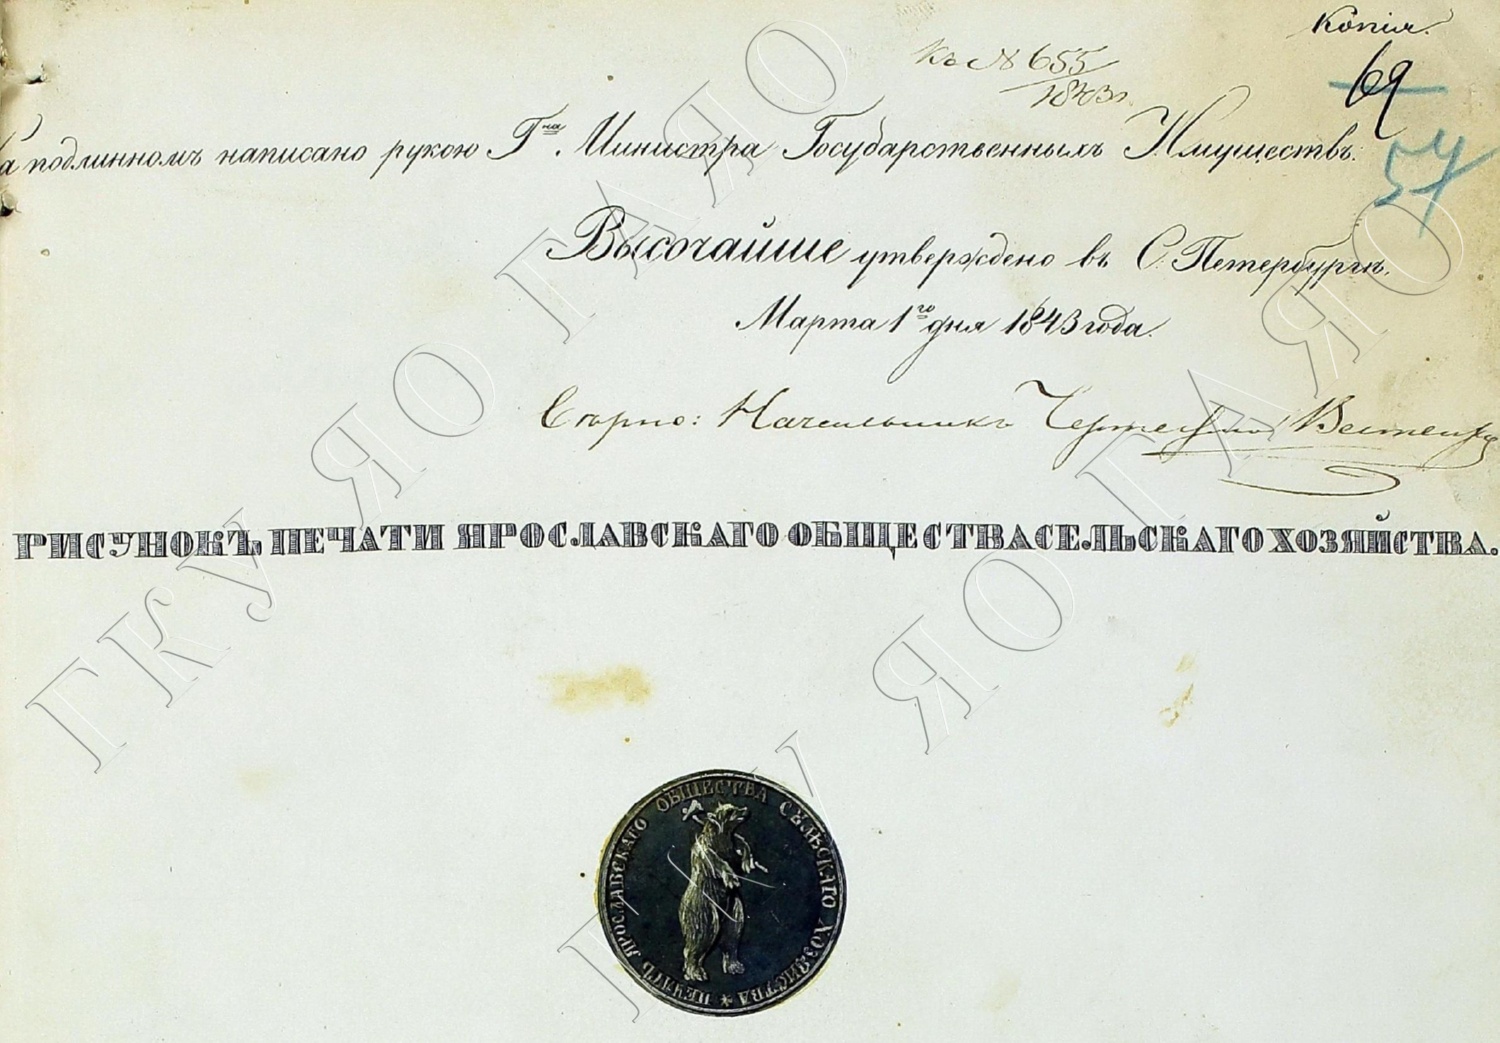 Копія.
Къ № 655
1843 г.
69
57
а подлинномъ написано рукою Гна. Министра Государственныхъ Имуществъ:
Высочайше утверждено въ С. Петербургѣ,
Марта 1го дня 1843 года.
Вѣрно: Начальникъ
РИСУНОКЪ ПЕЧАТИ ЯРОСЛАВСКАГО ОБЩЕСТВА СЕЛЬСКАГО ХОЗЯЙСТВА.
ПЕЧАТЬ ЯРОСЛАВСКАГО ОБЩЕСТВА СЕЛЬСКАГО ХОЗЯЙСТВА *
ГКУ ЯО ГАЯО
ГКУ ЯО ГАЯО